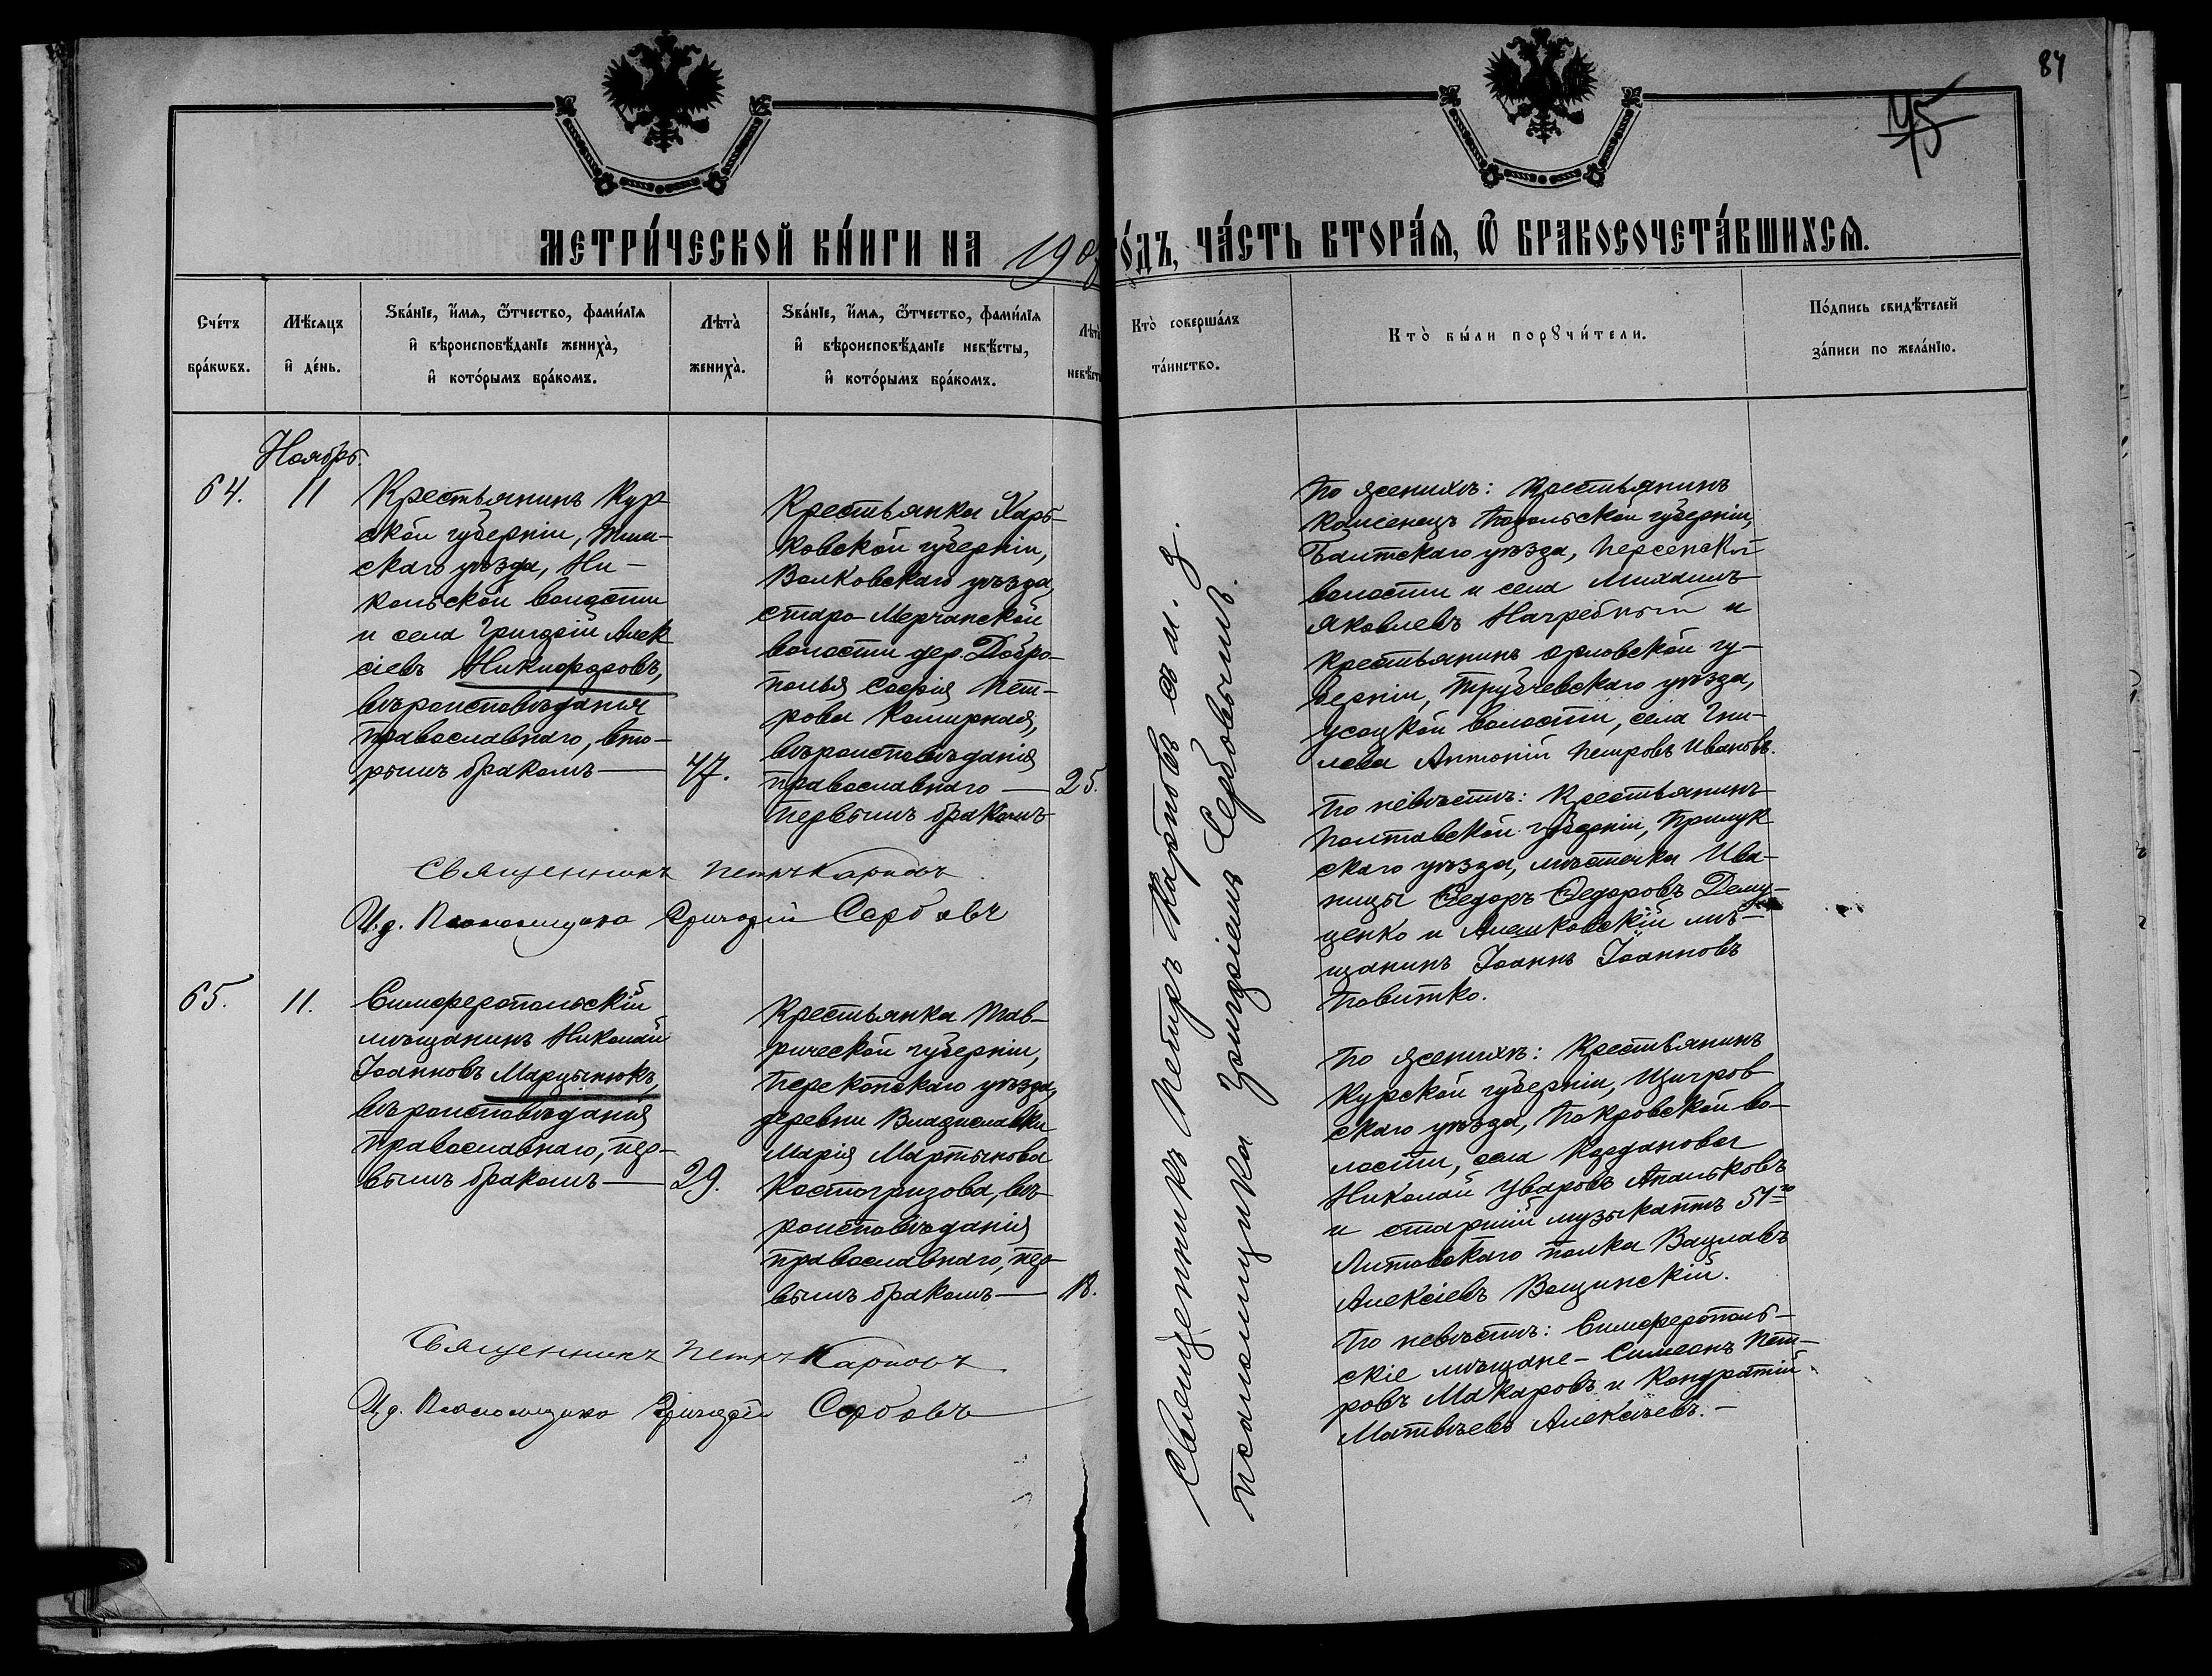 87
45
МЕТРИ́ЧЕСКОЙ КНИ́ГИ НА 190
ГО́ДЪ, ЧА́СТЬ ВТОРА́Ѧ, Ѿ БРАКОСОЧЕТА́ВШИХСѦ.
Сче́тъ бра́кωвъ.
Мѣ́сѧцъ и҆ де́нь.
Ѕва́нїе, и҆́мѧ, ѻ҆́тчество, фами́лїѧ
и҆ вѣроисповѣ́данїе жениха̀,
и҆ кото́рымъ бра́комъ.
Лѣта̀ жениха̀.
Ѕва́нїе, и҆́мѧ, ѻ҆́тчество, фами́лїѧ
и҆ вѣроисповѣ́данїе невѣ́сты,
и҆ кото́рымъ бра́комъ.
Лѣта̀ невѣ́сты
Кто̀ соверша́лъ
та́инство.
Кто̀ бы́ли порꙋчи́тели.
По́дпись свидѣ́телей
за́писи по жела́нїю.
Ноябрь.
64.
11
Крестьянинъ Кур-
ской губерніи, Тим-
скаго уѣзда, Ни-
кольской волости
и села Григорій Алек
сіевъ Никифоровъ,
вѣроисповѣданія
православнаго, вто-
рымъ бракомъ—
47.
Крестьянка Харь-
ковской губерніи,
Валковскаго уѣзда,
старо-Мерчанской
волости дер. Добро-
полья Софія Пет-
рова Каширная,
вѣроисповѣданія
православнаго —
первымъ бракомъ
25.
Священникъ Петръ Карповъ.
И. д. Псаломщика Григорій Сербовъ
По женихѣ: Крестьянинъ
Каменецъ Подольской губерніи,
Балтскаго уѣзда, Песчанской
волости и села Михаилъ
Яковлевъ Нагребный и
крестьянинъ Орловской гу-
берніи, Трубчевскаго уѣзда,
Усоцкой волости, села Гни-
лева Антоній Петровъ Ивановъ.
По невѣстѣ: Крестьянинъ
Полтавской губерніи, Прилук
скаго уѣзда, мѣстечка Ива-
ницы Ѳедоръ Ѳедоровъ Дему-
ценко и Алешковскій мѣ-
щанинъ Іоаннъ Іоанновъ
Повитко.
65.
11.
Симферопольскій
мѣщанинъ Николай
Іоанновъ Марцынюкъ,
вѣроисповѣданія
православнаго, пер-
вымъ бракомъ—
29.
Крестьянка Тав-
рической губерніи,
Перекопскаго уѣзда,
деревни Владиславки
Марія Мартынова
Костогризова, вѣ-
роисповѣданія
православнаго, пер-
вымъ бракомъ—
18.
Священникъ Петръ Карповъ
И. д. Псаломщика Григорій Сербовъ
По женихѣ: Крестьянинъ
Курской губерніи, Щигров
скаго уѣзда, Покровской во-
лости, села Кардановва
Николай Уваровъ Апальковъ
и старшій музыкантъ 51го
Литовскаго полка Вацлавъ
Алексіевъ Вощинскій.
По невѣстѣ: Симферополь-
скіе мѣщане- Симеонъ Пет-
ровъ Макаровъ и Кондратій
Матвѣевъ Алексѣевъ.-
Священникъ Петръ Карповъ съ и. д.
псаломщика Григоріемъ Сербовымъ.